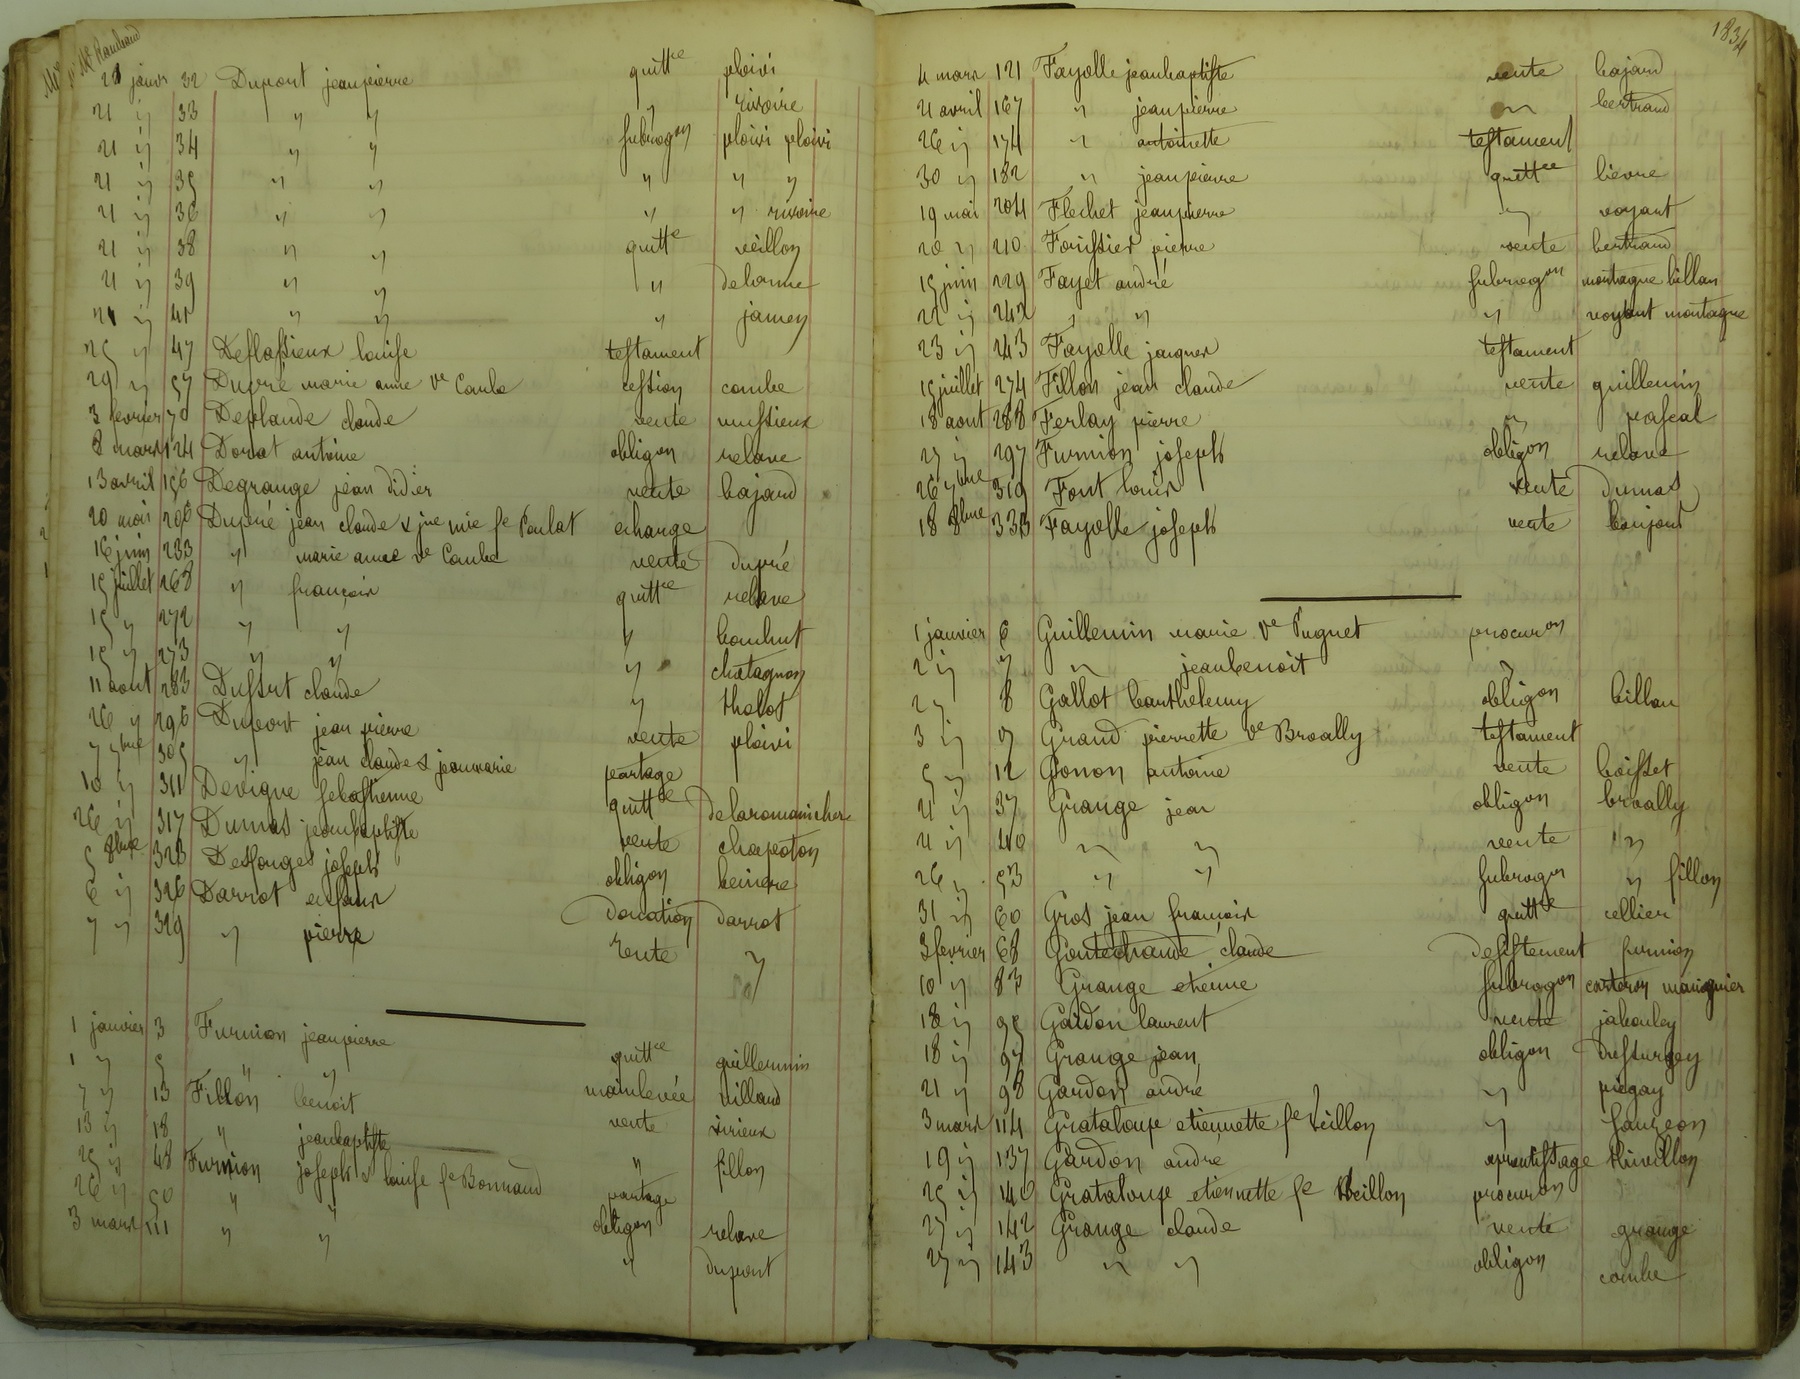 Me Rambaud
21 janvr 32 Dupont jeanpierre quittce ploivi
21 " 33 " " " rivoire
21 " 34 " " subrogon ploivi ploivi
21 " 35 " " " " "
21 " 36 " " " " rivoire
21 " 38 " " quittce veillon
21 " 39 " " " delorme
21 " 41 " " " jamey
25 " 47 Deflassieux louise testament
29 " 57 Dupré marie anne ve Combe cession combe
3 fevrier 70 Deplaude claude vente mussieux
8 mars 124 Dorat antoine obligon relave
13 avril 156 Degrange jean didier vente bajard
20 mai 206 Dupré jean claude & jne mie fe Poulat echange
16 juin 233 " marie anne ve Combe vente dupré
15 juillet 268 " françois quittce relave
15 " 272 " " "
15 " 273 " " " chatagnon
11 aout 283 Dussut claude " thalot
26 " 296 Dupont jean pierre vente ploivi
7 7bre 305 " jean claude & jeanmarie partage
10 " 311 Devigne sebastienne quittce
26 " 317 Dumas jeanbaptiste vente chapoton
5 8bre 323 Desfonges joseph obligon
6 " 326 Darrot donation darrot
7 " 329 " pierre vente "
1 janvier 3 Furnion jeanpierre quittce guillemin
1 " 5 " " mainlevée villard
7 " 13 Fillon benoit vente virieux
13 " 18 " jeanbaptiste " fillon
25 " 48 Furnion joseph & louise fe Bonnand partage
26 " 50 " " obligon relave
3 mars 111 " " " dupont
1834
4 mars 121 Fayolle jeanbaptiste vente bajard
21 avril 167 " jeanpierre " bertrand
26 " 174 " antoinette testament
30 " 182 " jeanpierre quittce lievre
19 mai 204 Flechet jeanpierre " voyant
20 " 210 Fouissier pierre vente bertrand
15 juin 229 Fayet andré subrogon montagne billan
22 " 242 " " " voyant montagne
23 " 243 Fayolle jacques testament
15 juillet 274 Fillon jean claude vente guillemin
18 aout 288 Ferlay pierre " pascal
27 " 297 Furnion joseph obligon relave
26 7bre 319 Font louis vente dumas
18 8bre 333 Fayolle joseph vente bonjour
1 janvier 6 Guillemin marie ve Pugnet procuron
2 " 7 " jeanbenoit "
2 " 8 Gallot barthelemy obligon billan
3 " 9 Grand pierrette ve Broally testament
5 " 12 Gonon antoine vente boisset
21 " 37 Grange jean obligon broally
21 " 40 " " vente "
26 " 53 " " subrogon " fillon
31 " 60 Gros jean françois quittce cellier
3 fevrier 68 Goutechaude claude desistement furnion
10 " 83 Grange etienne subrogon
18 " 95 Gardon laurent vente jabouley
18 " 97 Grange jean obligon dussurgey
21 " 98 Gardon andré " piegay
3 mars 114 Grataloupe etiennette fe Veillon " fauzeon
19 " 137 Gardon andré aprentissage thivillon
25 " 140 Grataloupe etiennette fe Veillon procuron
27 " 142 Grange claude vente grange
27 " 143 " " obligon combe